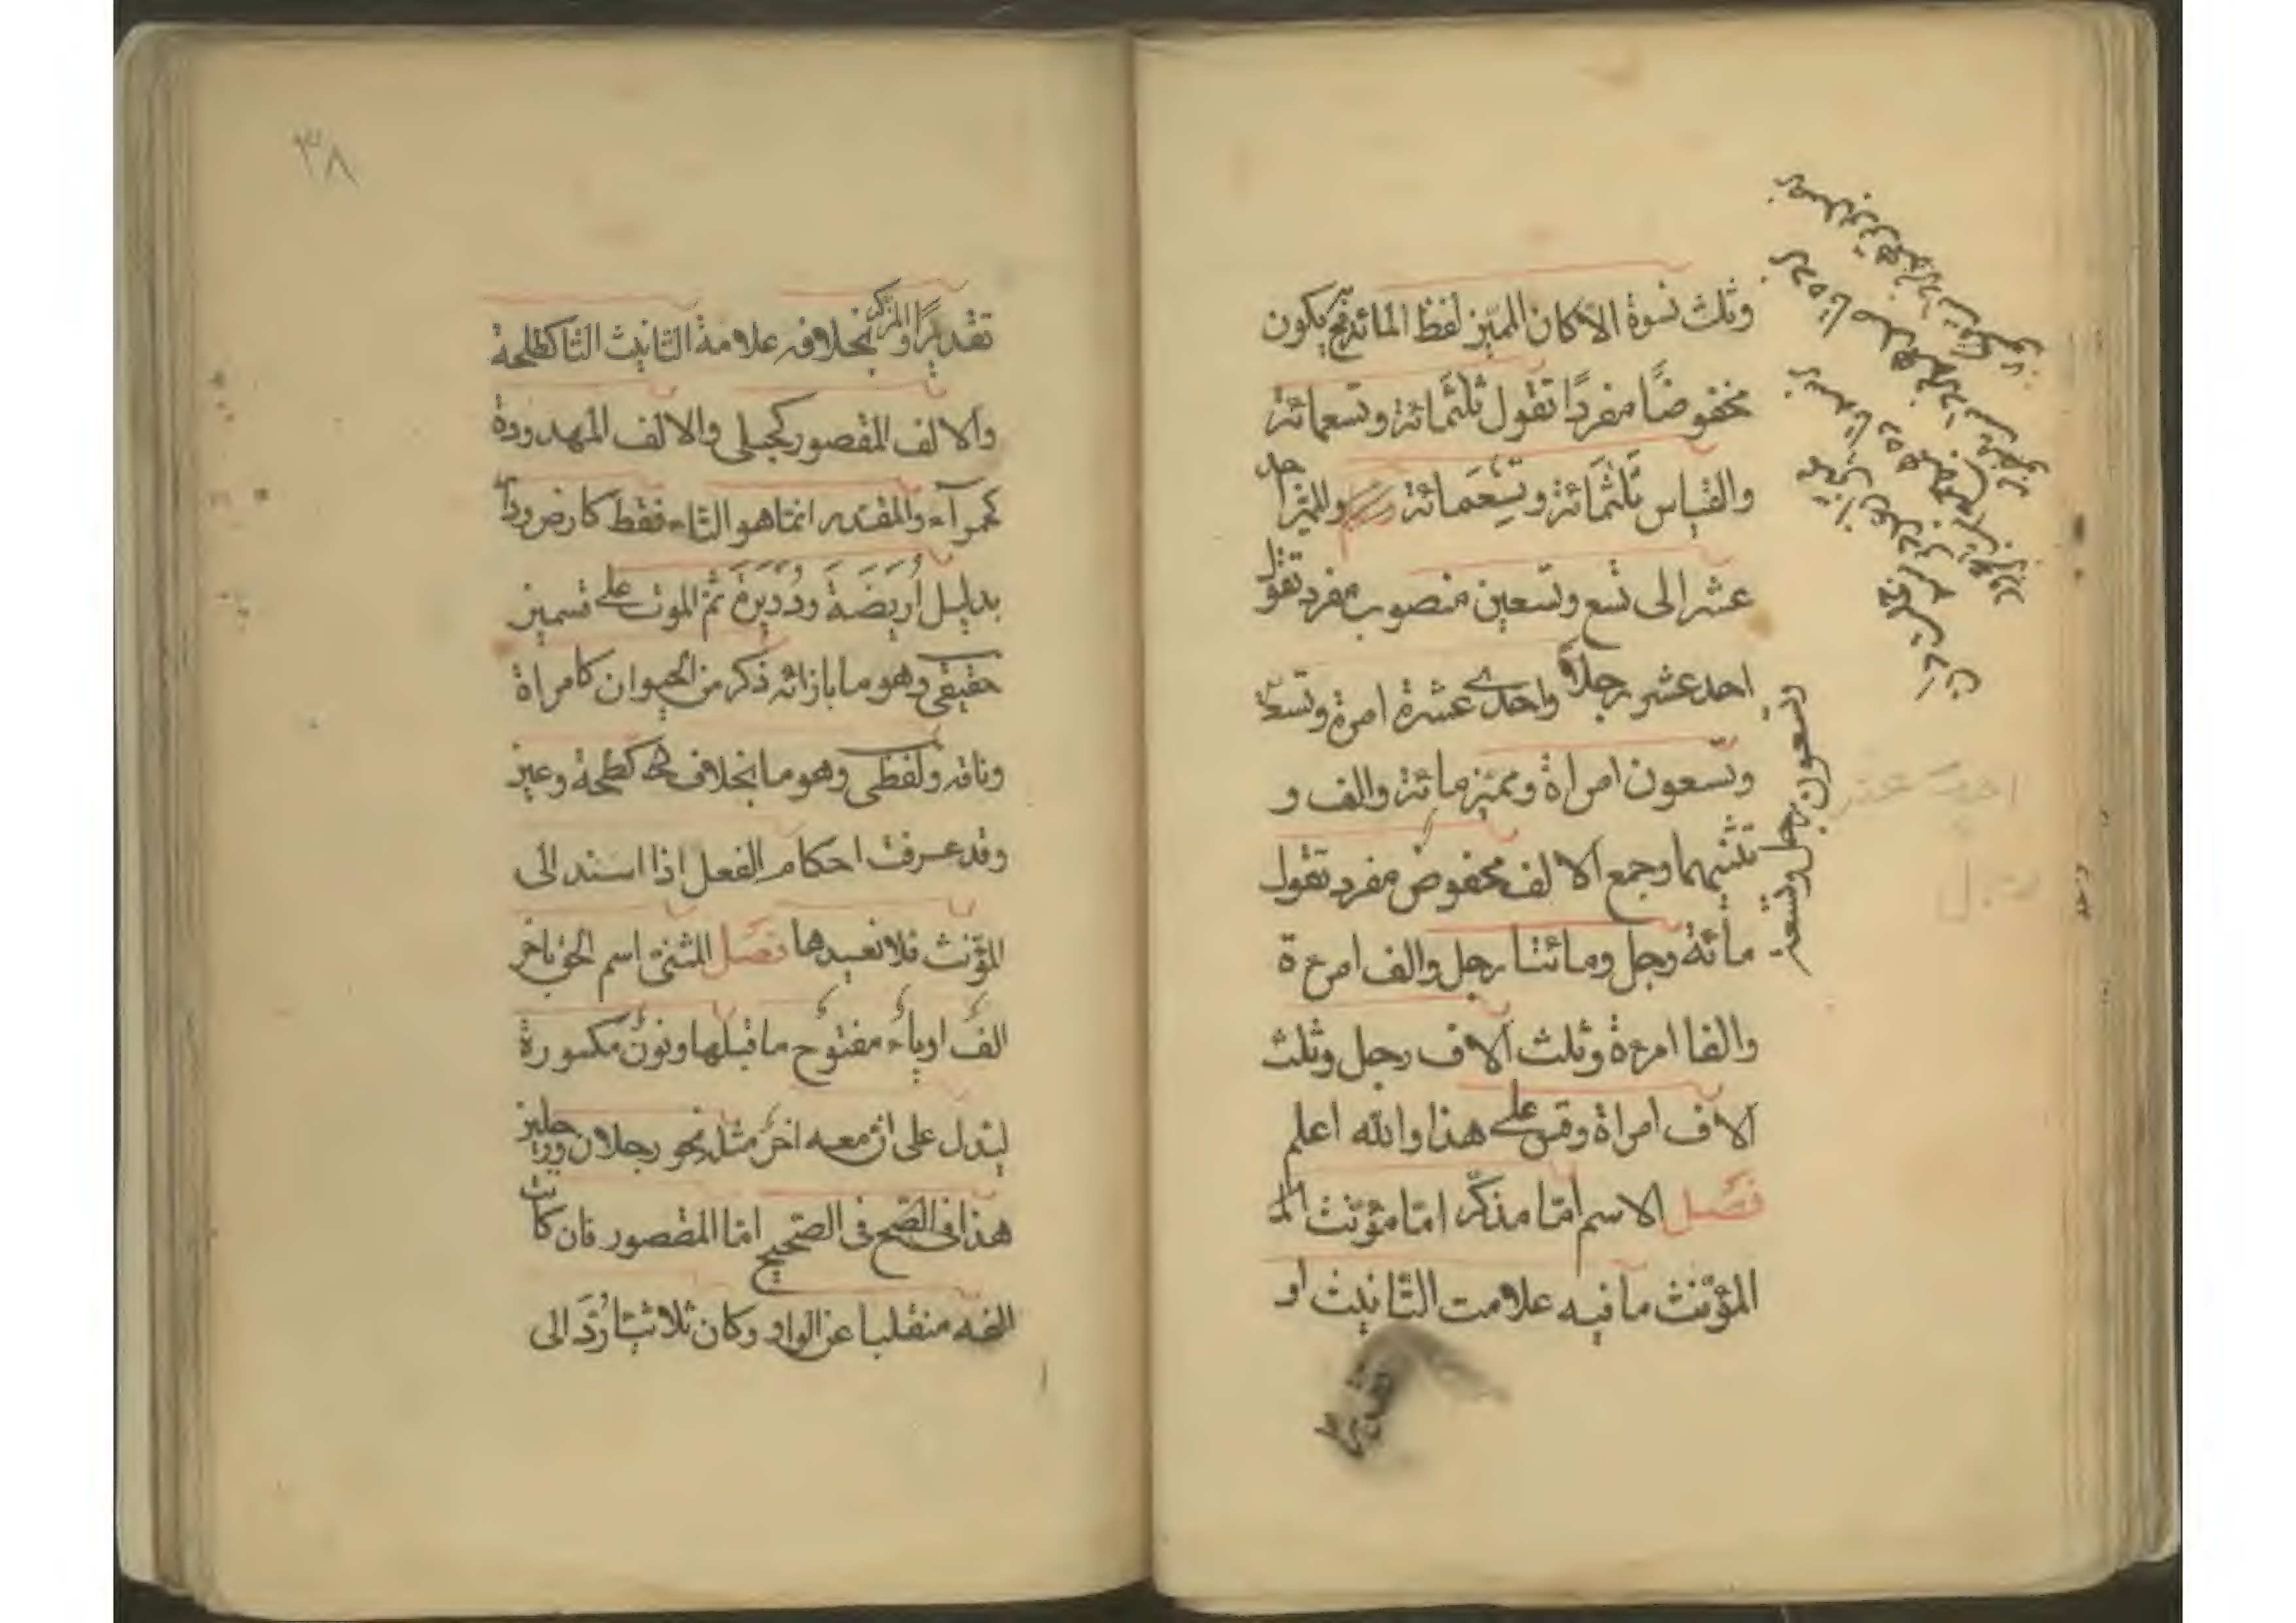 وثلث نسوة الا كان المميز لفظ المائة فح يكون
مخفوضًا مفردًا تقول ثلثمائة وتسعمائة
والقياس ثلثمائة وتسعمائة والمميز احد
عشر الى تسع وتسعين منصوب مفرد تقول
احد عشر رجلاً واحدى عشرة امرة وتسعة
وتسعون رجل وتسعة
وتسعون امراة ومميز مائة والف و
تثنيهما وجمع الالف مخفوض مفرد تقول
مائة رجل ومائتا رجل والف امرءة
والفا امرءة وثلث آلاف رجل وثلث
آلاف امراة وقس على هذا والله اعلم
فصل الاسم امّا مذكّر امّا مؤنّث
المؤنّث ما فيه علامت التّانيث او
تقديرًا
٣٨
تقديرًا والمذكر بخلافه علامة التّانيث التّا كطلحة
والالف المقصور كحبلى والالف الممدودة
كحمرآء والمقدر انما هو التّاء فقط كارض ودار
بدليل اُرَيضَة ودُوَيرة ثمّ الموت على قسمين
حقيقي وهو ما بازائه ذكر من الحيوان كامراة
وناقه ولفظي وهو ما بخلافه كطلحة وعين
وقد عرفت احكام الفعل اذا اسند الى
المؤنّث فلا نعيدها فصل المثنى اسم الحق باخر
الف اوياء مفتوح ما قبلها ونون مكسورة
ليدل على ان معه اخر مثله نحو رجلان ورجلين
هذا فى الصح فى الصّحيح امّا المقصور فان كانت
الفه منقلبا عن الواو وكان ثلاثيّا رُدَّ الى